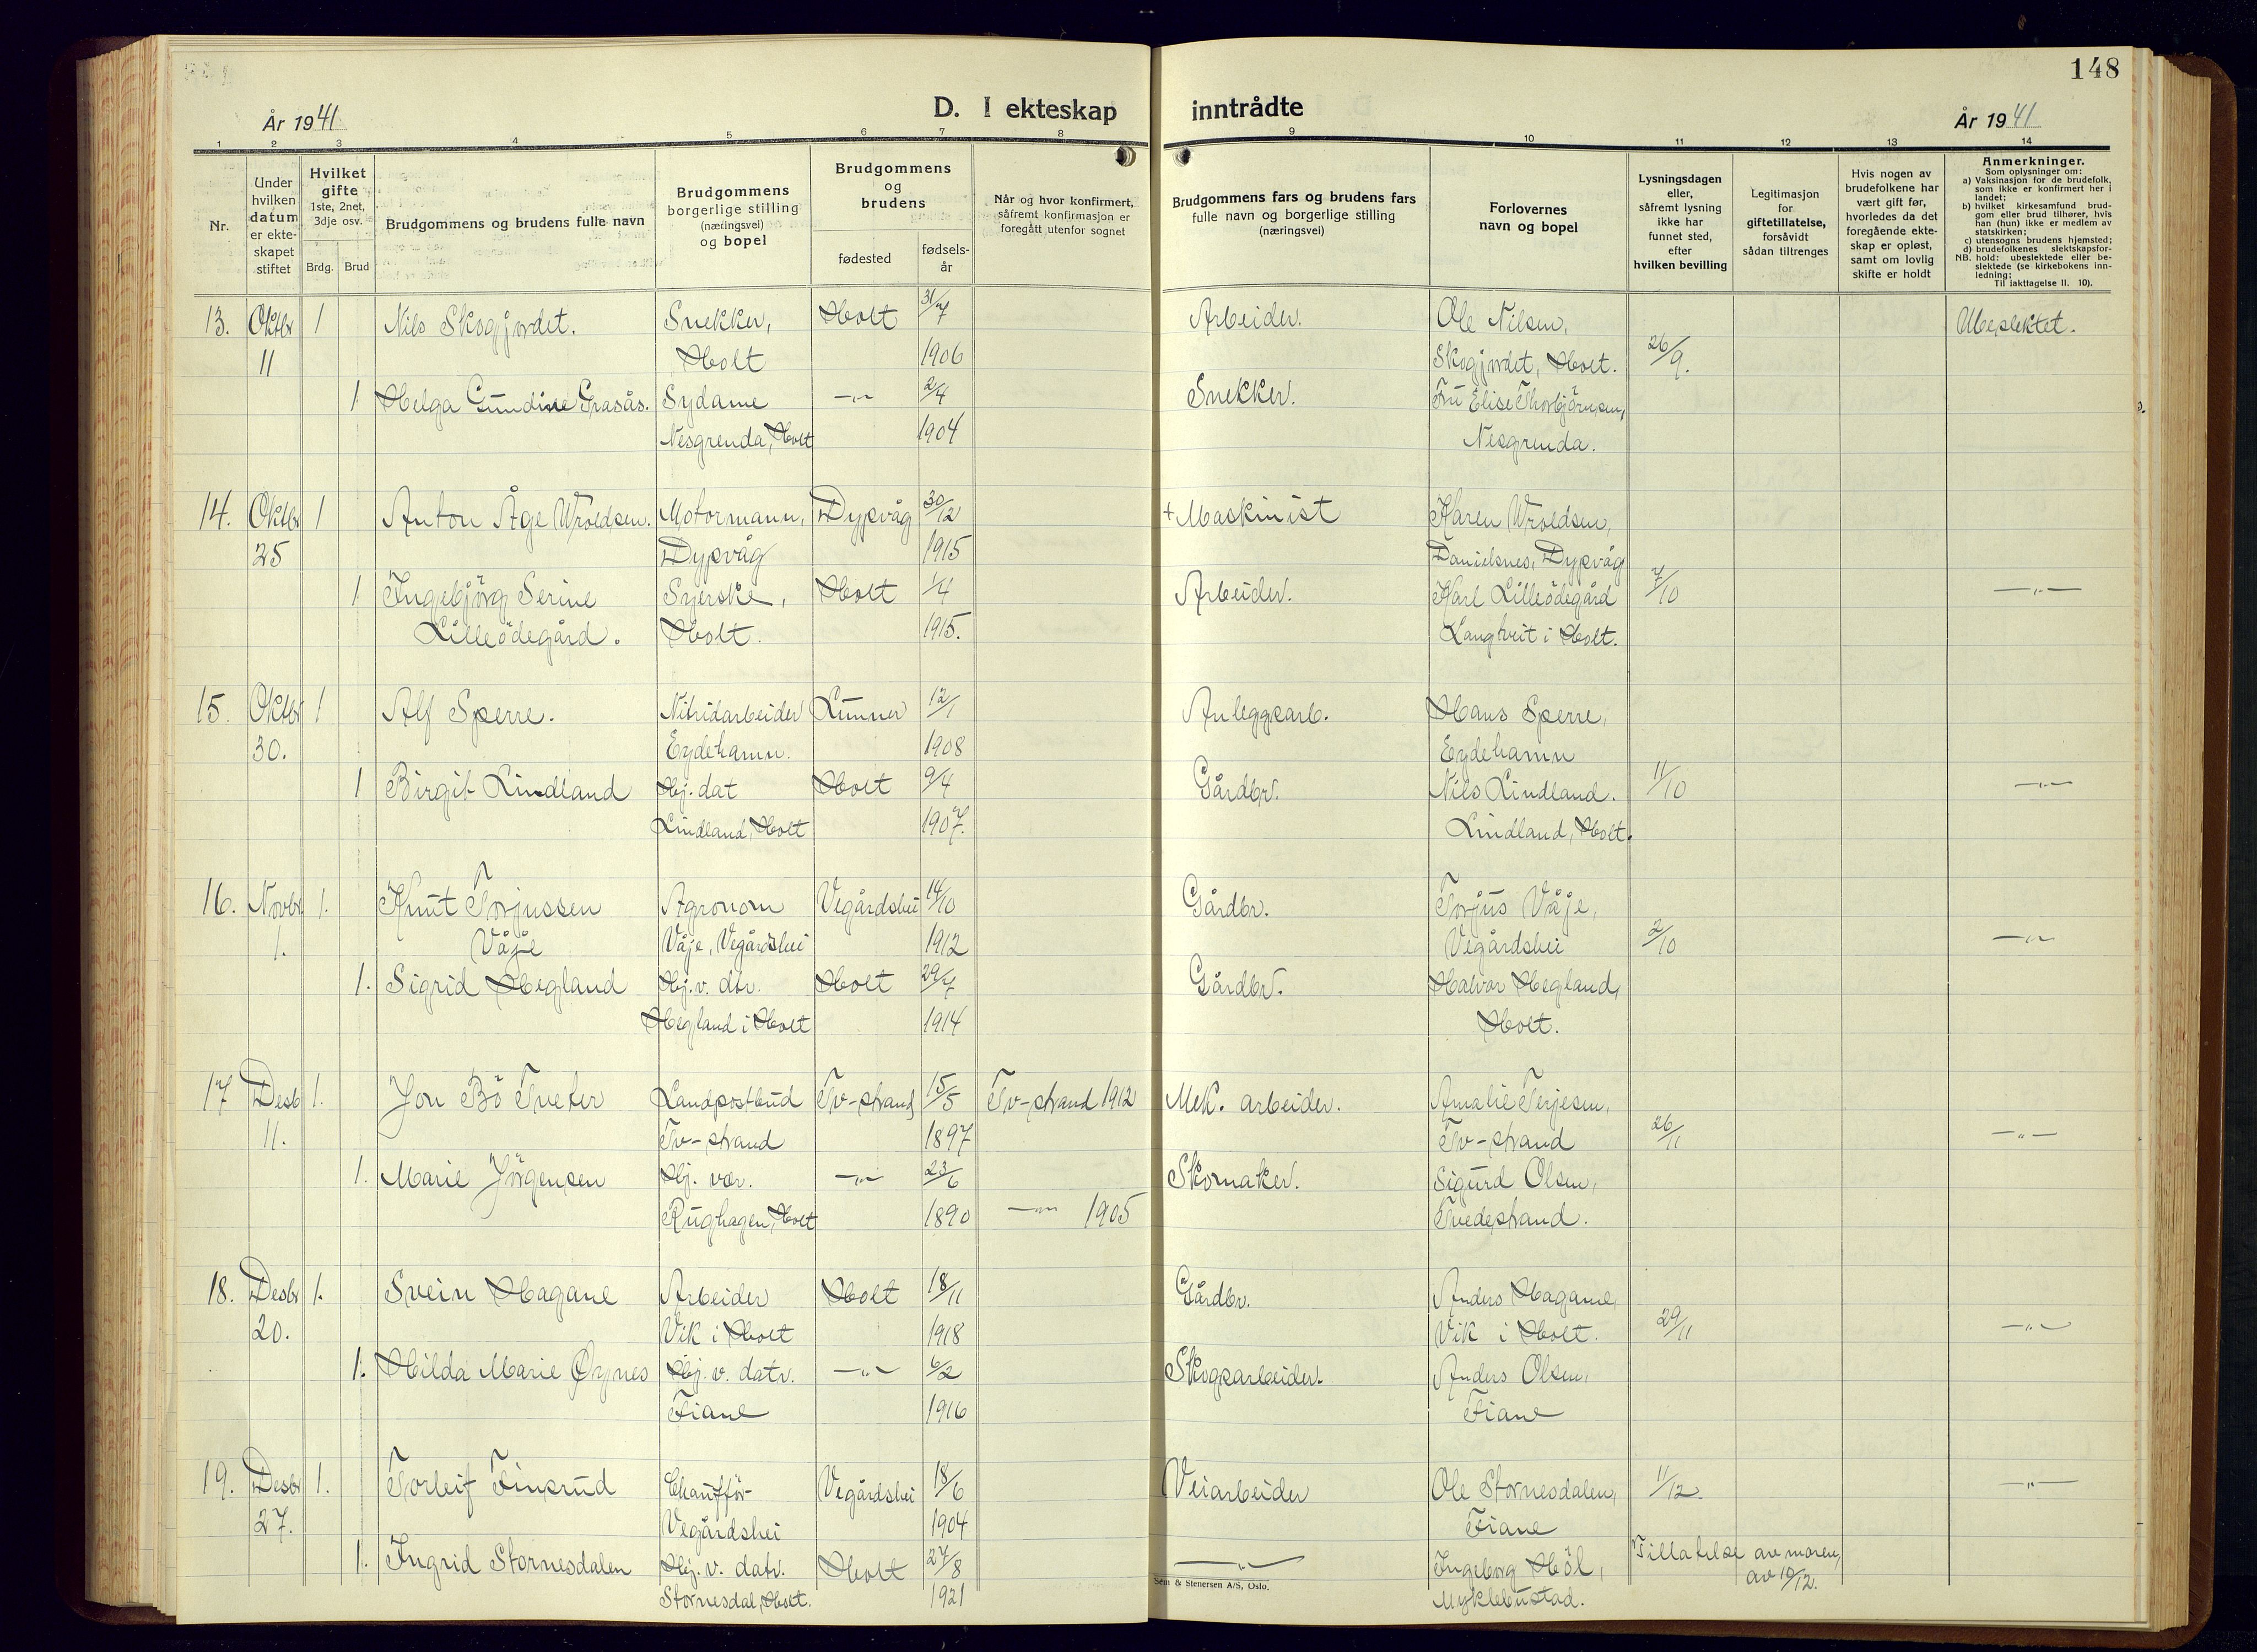 148
År 1941
D. I ekteskap inntrådte
År 1941
1 2 3 4 5 6 7 8 9 10 11 12 13 14
Nr.
Under hvilken datum er ekteskapet stiftet
Hvilket gifte 1ste, 2net, 3dje osv.
Brdg. Brud
Brudgommens og brudens fulle navn
Brudgommens borgerlige stilling (næringsvei) og bopel
Brudgommens og brudens
fødested
fødsels-år
Når og hvor konfirmert, såfremt konfirmasjon er foregått utenfor sognet
Brudgommens fars og brudens fars fulle navn og borgerlige stilling (næringsvei)
Forlovernes navn og bopel
Lysningsdagen eller, såfremt lysning ikke har funnet sted, efter hvilken bevilling
Legitimasjon for giftetillatelse, forsåvidt sådan tiltrenges
Hvis nogen av brudefolkene har vært gift før, hvorledes da det foregående ekteskap er opløst, samt om lovlig skifte er holdt
Anmerkninger.
Som oplysninger om:
a) Vaksinasjon for de brudefolk, som ikke er konfirmert her i landet;
b) hvilket kirkesamfund brudgom eller brud tilhører, hvis han (hun) ikke er medlem av statskirken;
c) utensogns brudens hjemsted;
d) brudefolkenes slektskapsforhold: ubeslektede eller beslektede (se kirkebokens innledning;
NB.
Til iakttagelse II. 10).
13. Oktbr 1 Nils Skogjordet. Snekker, Holt 31/7 Arbeider. Ole Nilsen, Ubeslektet.
11 Holt 1906 Skogjordet, Holt. 26/9.
1 Helga Gundine Grasås. Sydame —"— 2/4 Snekker. Fru Elise Thorbjörnsen,
Nesgrenda, Holt 1904 Nesgrenda.
14. Oktbr 1 Anton Åge Wroldsen. Motormann, Dypvåg 30/12 + Maskinist Karen Wroldsen,
25 Dypvåg 1915 Danielsnes, Dypvåg
1 Ingebjörg Serine Syerske, Holt 1/4 Arbeider. Karl Lilleödegård 7/10 —"—
Lilleödegård. Holt. 1915. Langtveit i Holt.
15. Oktbr 1 Alf Sperre. Nitridarbeider Lunner 12/1 Anleggsarb. Hans Sperre,
30. Eydehamn. 1908 Eydehamn
1 Birgit Lindland Hj. dat Holt 9/4 Gårdbr. Nils Lindland. 11/10 —"—
Lindland, Holt 1907. Lindland, Holt.
16. Novbr 1. Knut Torjussen Agronom Vegårdshei 14/10 Gårdbr. Torjus Våje,
1. Våje Våje, Vegårdshei 1912 Vegårdshei 2/10 —"—
1. Sigrid Hegland Hj. v. dtr. Holt 29/7 Gårdbr. Halvor Hegland,
Hegland i Holt 1914 Holt.
17 Desb 1. Jon Bö Tveter Landpostbud Tv-strand 15/5 Tv-strand 1912 Mek. arbeider. Amalie Terjesen,
11. Tv-strand 1897 Tv-strand 26/11 —"—
1. Marie Jörgensen Hj. vær. —"— 23/6 Skomaker. Sigurd Olsen,
Rughagen, Holt 1890 —"— 1905 Tvedestrand.
18. Desbr 1. Svein Hagane Arbeider Holt 18/11 Gårdbr. Anders Hagane,
20. Vik i Holt 1918 Vik i Holt. 29/11 —"—
1. Hilda Marie Øynes Hj. v. datr. —"— 6/2 Skogsarbeider. Anders Olsen,
Fiane 1916 Fiane
19. Desbr 1. Torleif Finsrud Chaufför- Vegårdshei 18/6 Veiarbeider Ole Stornesdalen, 11/12. —"—
27. Vegårdshei 1904 Fiane
1. Ingrid Stornesdalen Hj. v. datr. Holt 27/8 —"— Ingeborg Höl, Tillatelse av moren,
Stornesdal, Holt. 1921 Myklebustad. av 10/12.
Sem & Stenersen A/S, Oslo.